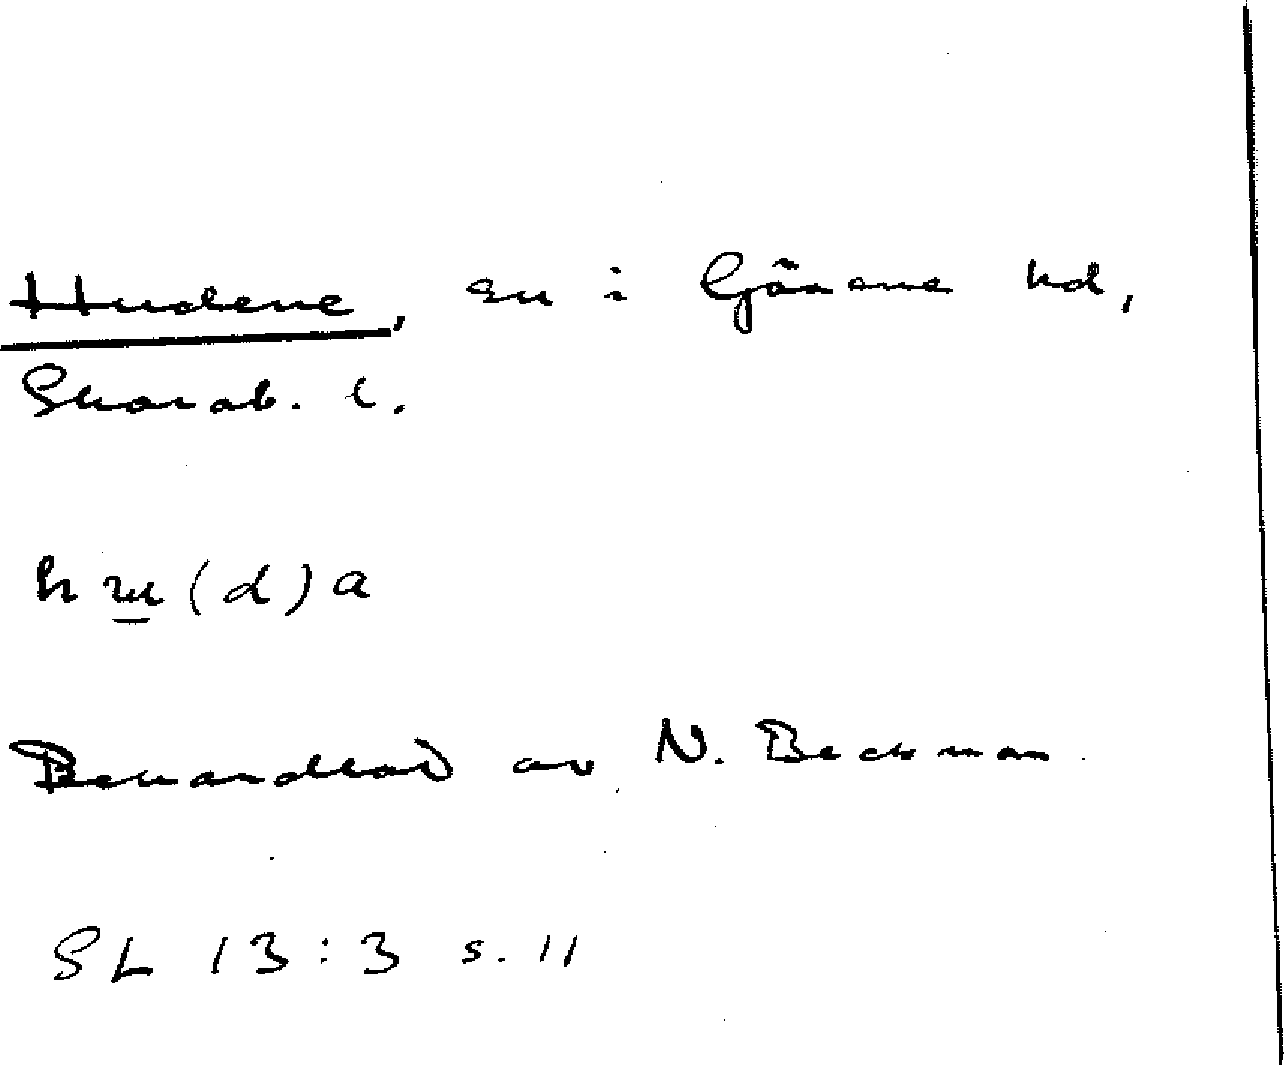 Hudene, sn i Gäsene hd,
Skarab. l.
hu(d)a
Behandlad av N. Beckman.
SL 13:3 s. 11